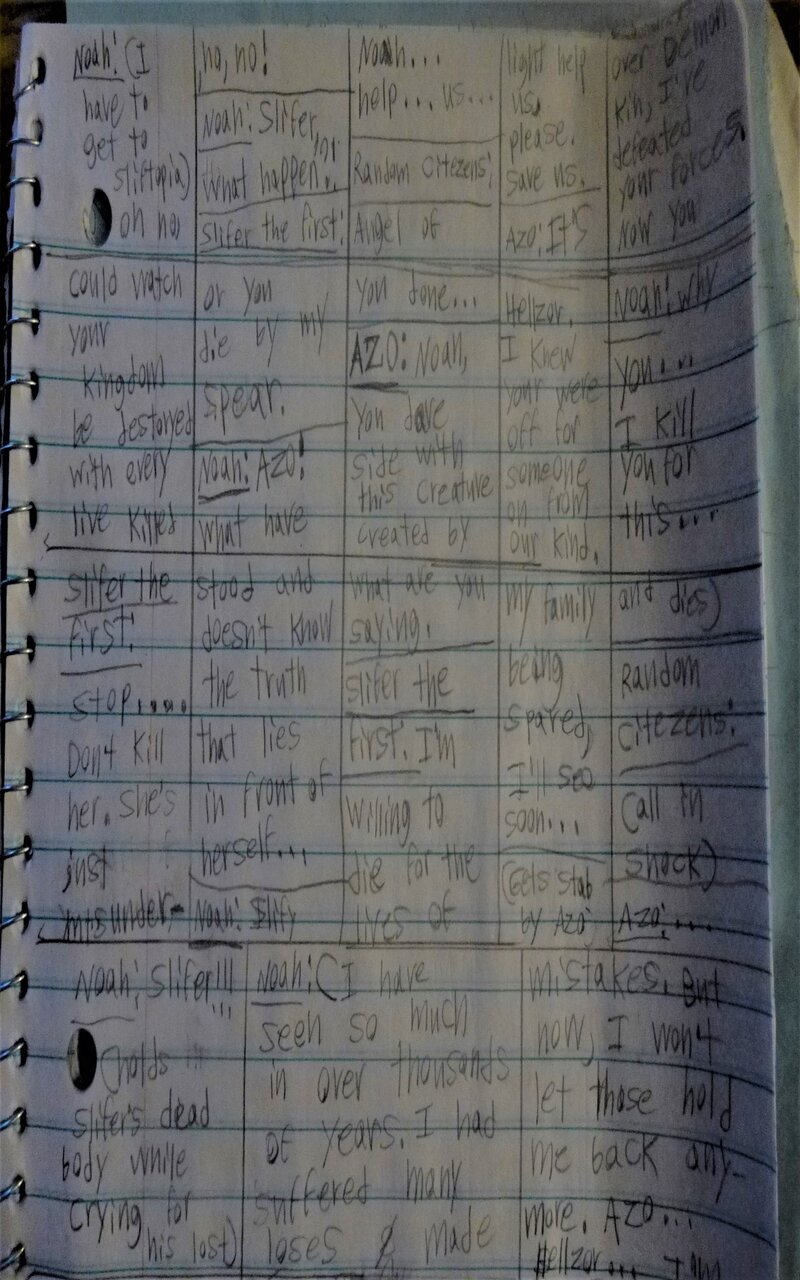 Noah: (I
have to
get to
sliftopia)
oh no
no, no!
Noah: Slifer,
What happen..
Slifer the first:
Noah...
help... us...
Random Citezens:
Angel of
light help
us,
please.
save us.
Azo: It's
over Demon
Kin, I've
defeated
your forces.
Now you
could watch
your
Kingdom
be destoryed
with every
live killed
or you
die by my
spear.
Noah: AZO!
what have
you done...
AZO: Noah,
You dare
side with
this creature
created by
Hellzor.
I Knew
your were
off for
someone
on from
our kind.
Noah: why
you...
I kill
you for
this...
slifer the
first:
stop....
Don't kill
her. She's
just
misunder-
stood and
doesn't know
the truth
that lies
in front of
herself...
Noah: Slify
what are you
saying.
slifer the
first: I'm
willing to
die for the
lives of
my family
being
spared,
I'll see
soon...
(Gets stab
by Azo
and dies)
Random
Citezens:
(all in
shock)
Azo:....
Noah: Slifer!!!
(holds
slifer's dead
body while
crying for
his lost)
Noah: (I have
seen so much
in over thousands
of years. I had
suffered many
loses & made
mistakes. But
now, I won't
let those hold
me back any-
more. Azo...
Hellzor... I'm